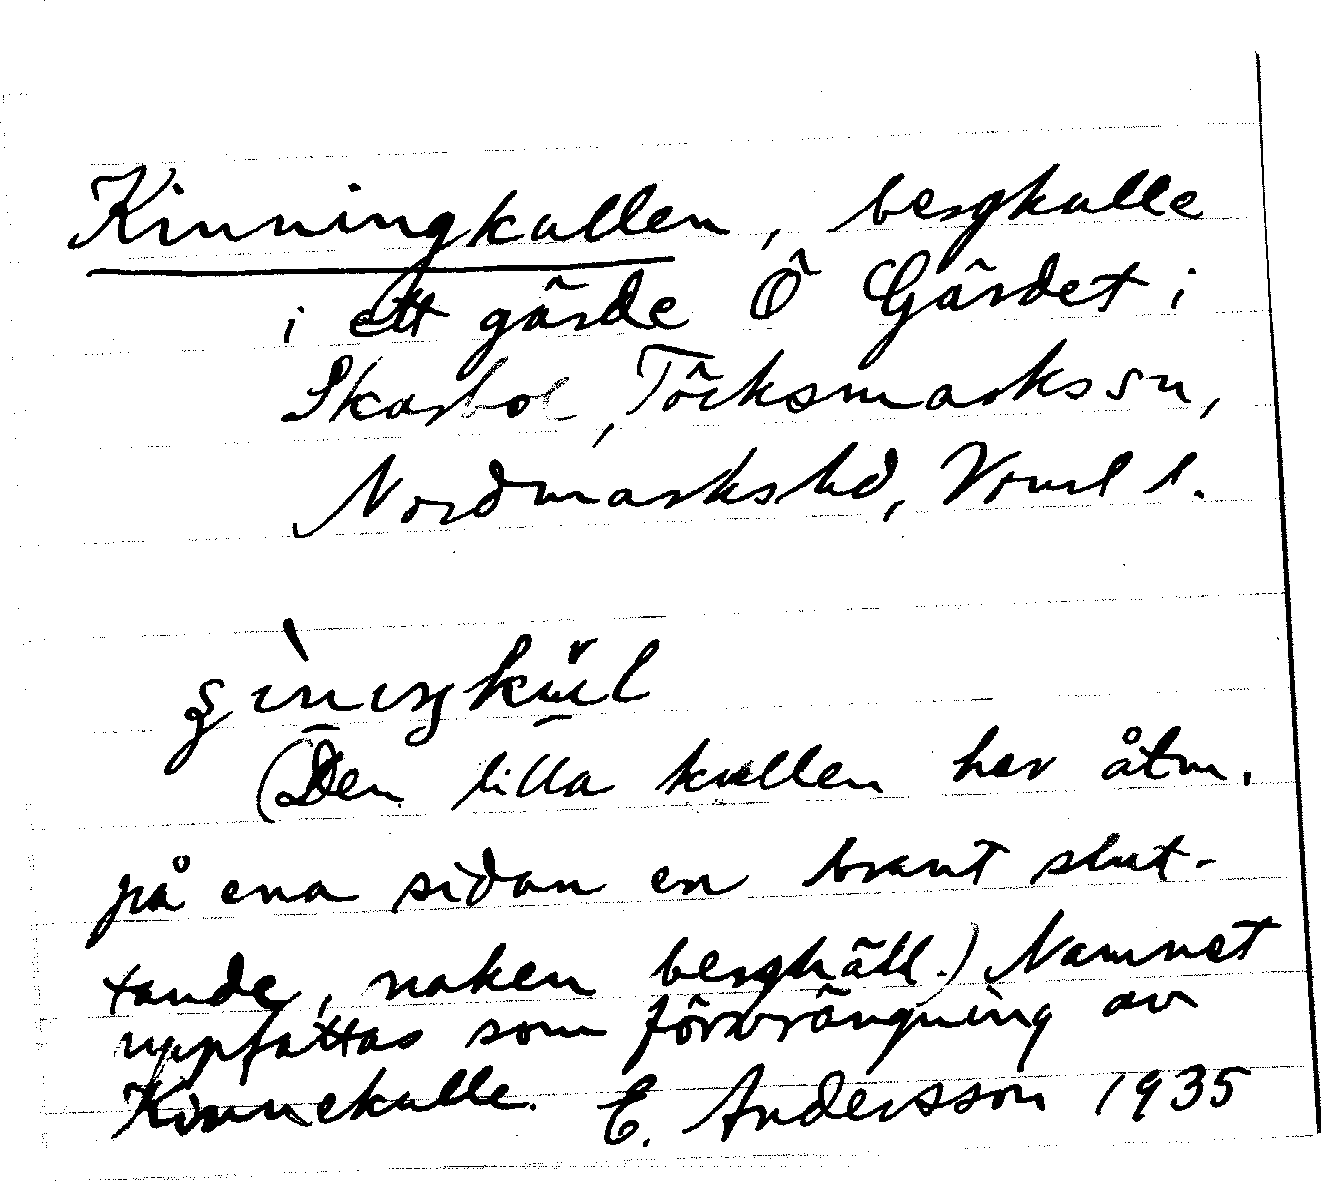 Kinningkullen, bergkulle
i ett gärde Ö Gärdet i
Skarbol, Töcksmarks sn,
Nordmarks hd, Vrml l.
(Den lilla kullen har åtm.
på ena sidan en brant slut-
tande, naken berghäll.) Namnet
uppfattas som förvrängning av
Kinnekulle. E. Andersson 1935